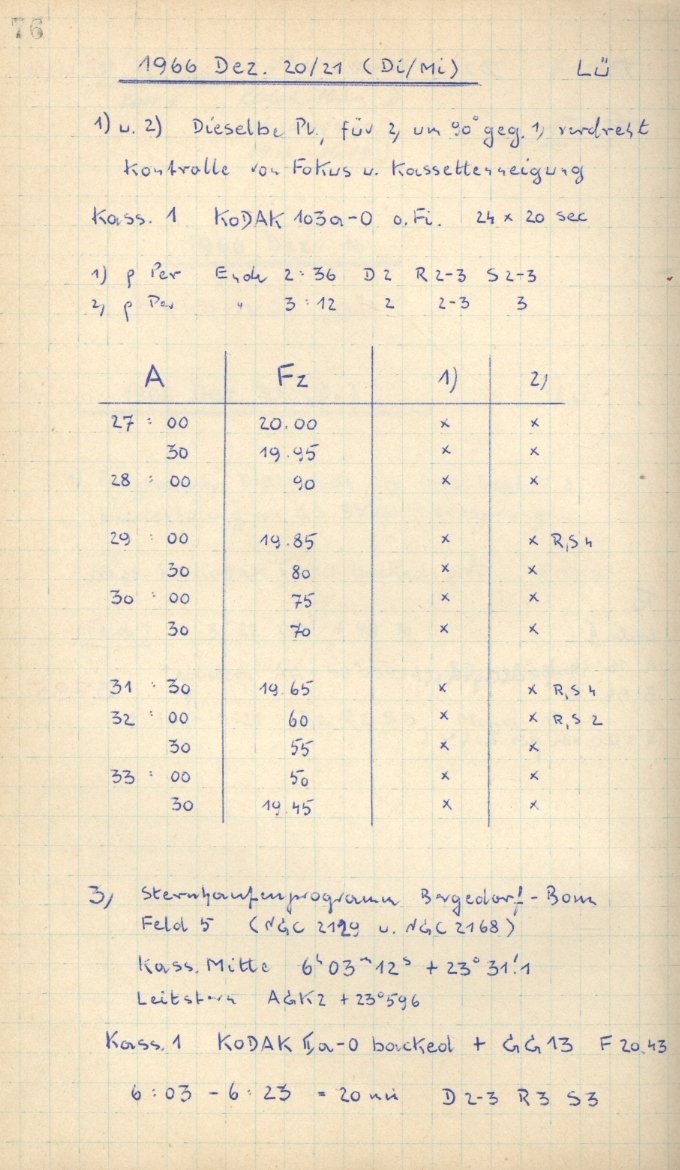 76
1966 Dez. 20/21 (Di/Mi) Lü
1) u. 2) Dieselbe Pl., für 2, um 90° geg. 1, verdreht
Kontrolle von Fokus u. Kassettenneigung
Kass. 1 KODAK 103a-O o.Fi. 24 x 20 sec
1) ρ Per Ende 2:36 D 2 R 2-3 S 2-3
2, ρ Per " 3:12 2 2-3 3
A Fz 1) 2,
27 : 00 20.00 x x
30 19.95 x x
28 : 00 90 x x
29 : 00 19.85 x x R,S 4
30 80 x x
30 : 00 75 x x
30 70 x x
31 : 30 19.65 x x R,S 4
32 : 00 60 x x R,S 2
30 55 x x
33 : 00 50 x x
30 19.45 x x
3, Sternhaufenprogramm Bergedorf - Bonn
Feld 5 (NGC 2129 u. NGC 2168)
Kass. Mitte 6ʰ 03ᵐ 12ˢ + 23° 31!1
Leitstern AGK2 + 23°596
Kass. 1 KODAK IIa-O backed + GG 13 F 20.43
6:03 - 6:23 = 20 min D 2-3 R 3 S 3